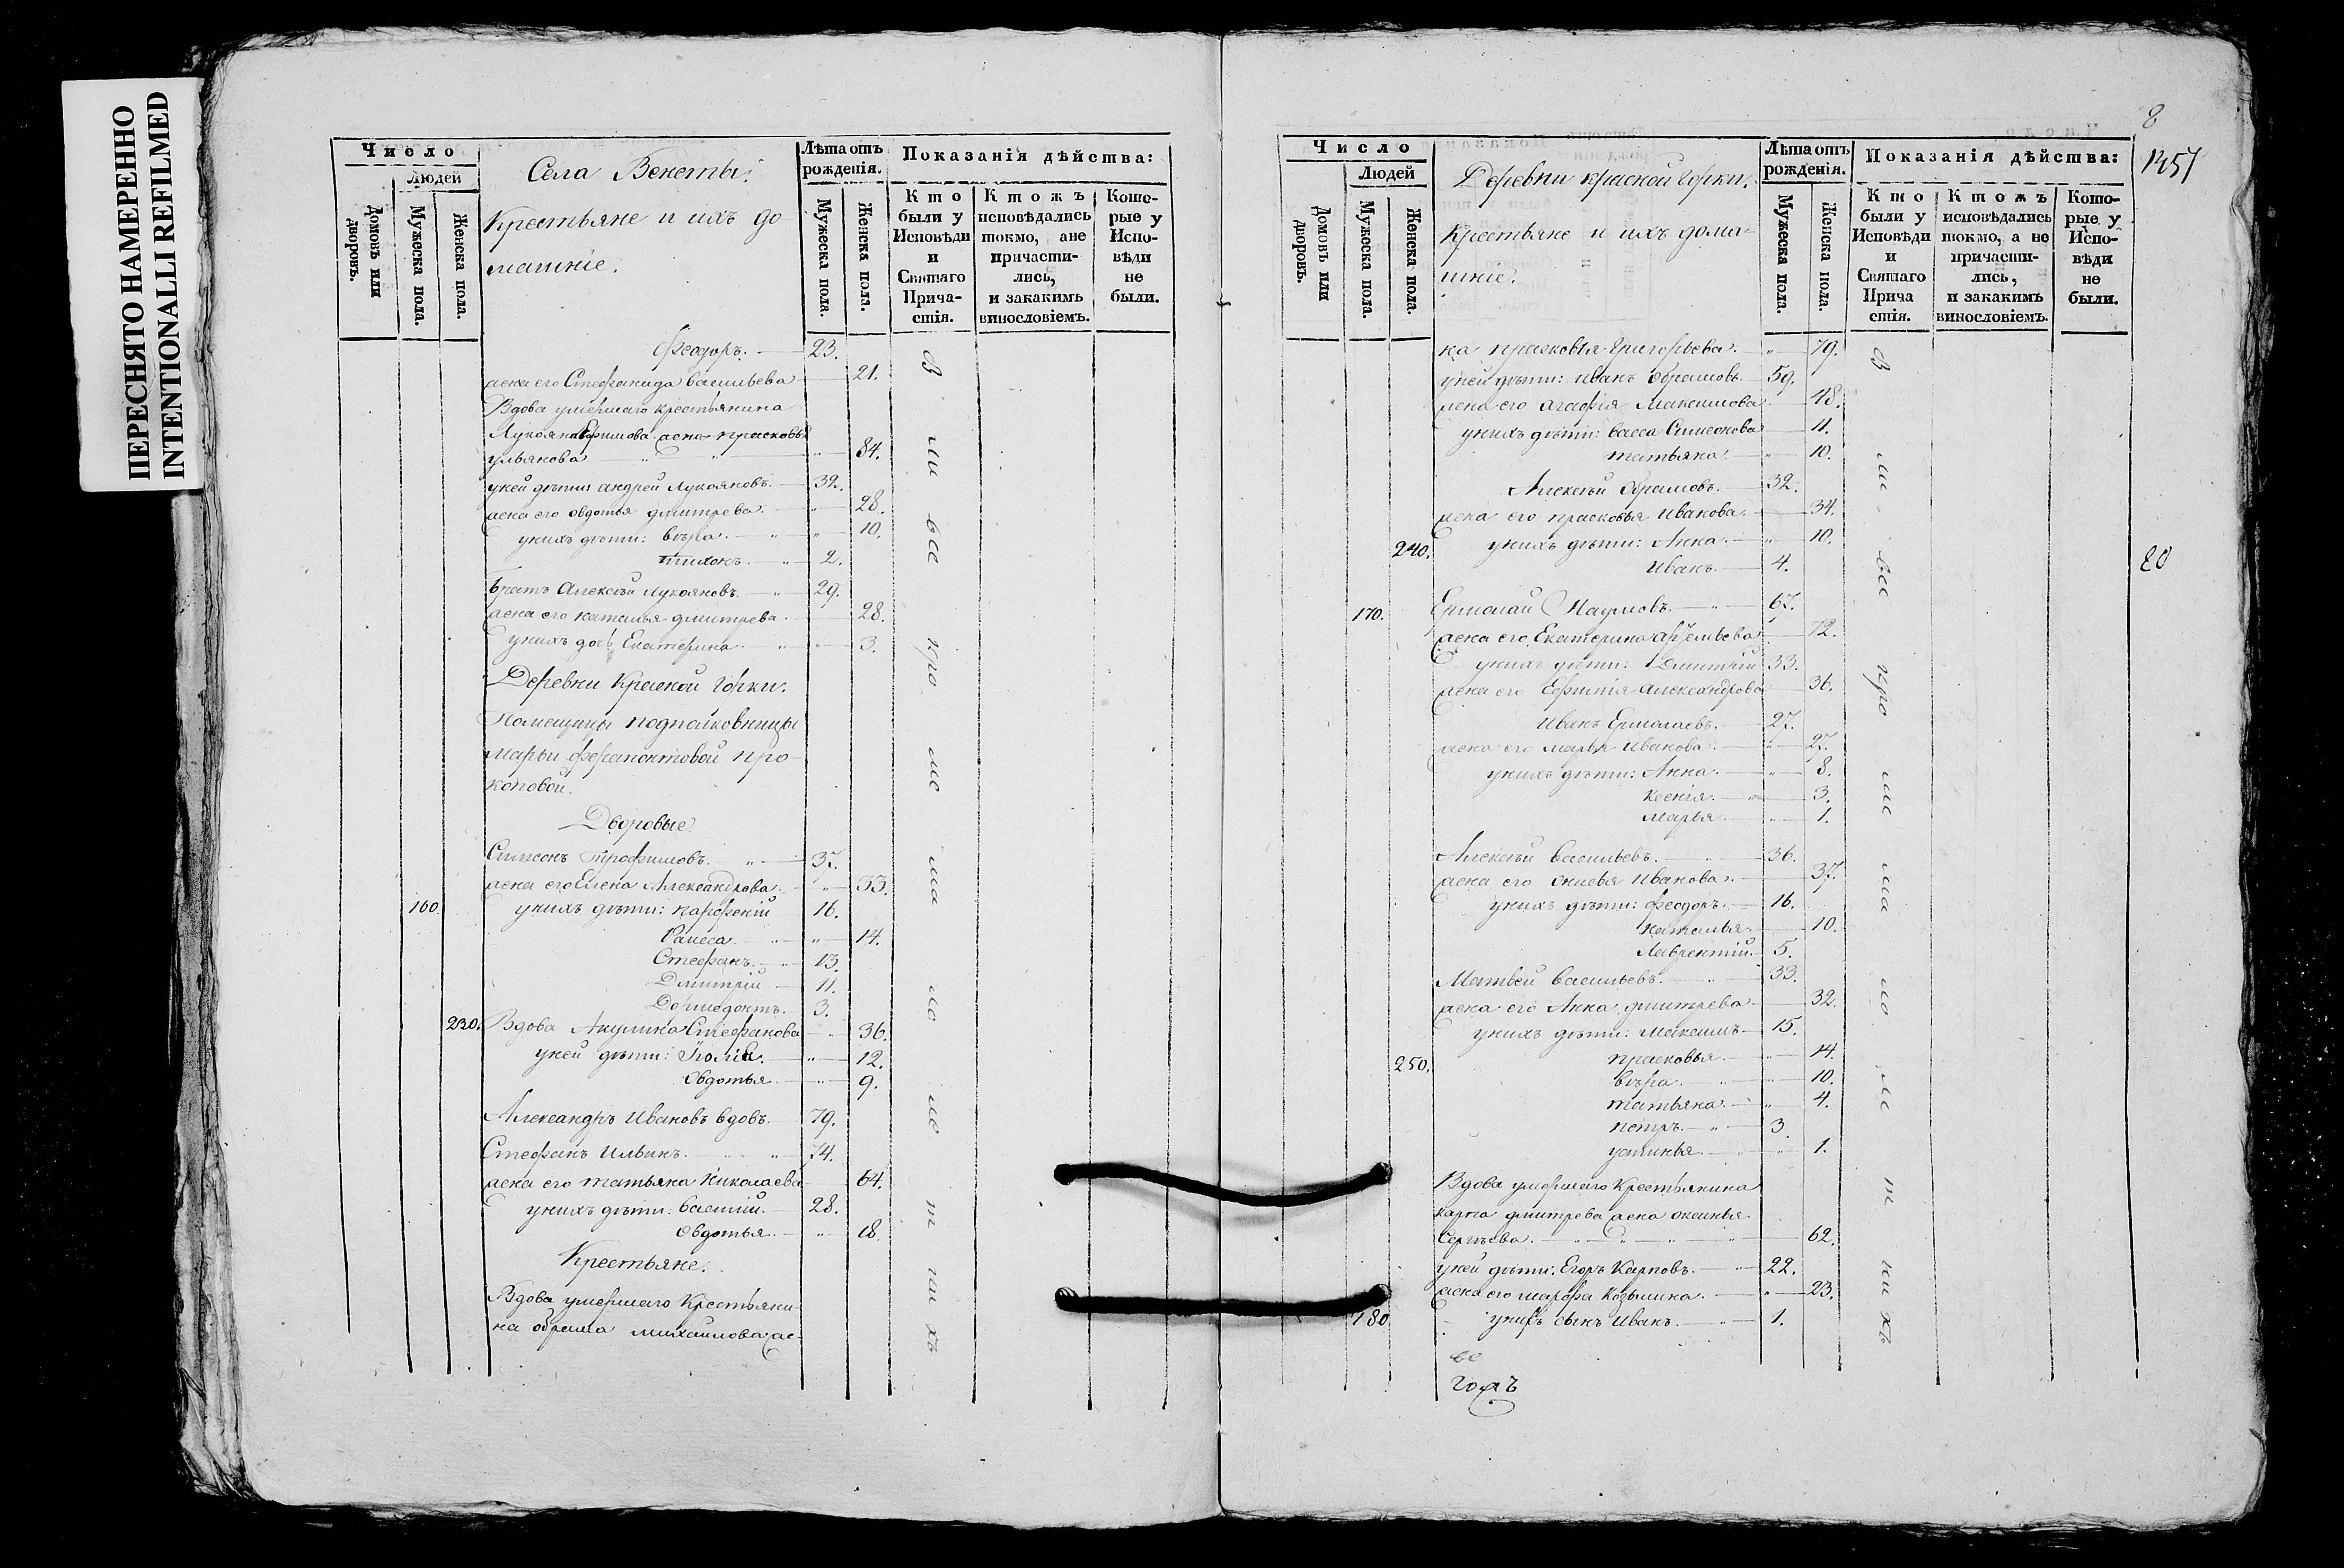 ПЕРЕСНЯТО НАМЕРЕННО
INTENTIONALLI REFILMED
Число
Людей
Домовъ или дворовъ.
Мужеска пола.
Женска пола.
Села Венеты.
Крестьяне и ихъ до
машніе.
Лѣта отъ рожденія.
Мужеска пола.
Женска пола.
Показанія дѣйства:
Кто были у Исповѣди и Святаго Прича- стія.
Ктожъ исповѣдались токмо, ане причасти- лись, и закакимъ винословіемъ.
Кото- рые у Испо- вѣди не были.
Феодоръ. 23.
жена его Стефанида Васильева 21.
Вдова умершаго крестьянина
Лукояна Ефимова жена Прасковья
Ульянова 84.
у ней дѣти Андрей Лукояновъ. 32.
жена его Овдотья Дмитрева. 28.
у нихъ дѣти: Вѣра. 10.
Тихонъ. 2.
Братъ Алексѣй Лукояновъ. 29.
жена его Наталья Дмитрева. 28.
у нихъ дочь Екатерина 3.
Деревни Красной Горки.
Помещицы подполковницы
Марьи Ферапонтовой Про-
коповой.
Дворовые
Симеонъ Трофимовъ. 37.
жена его Елена Александрова. 33.
160. у нихъ дѣти: Парфеній 16.
Раиса. 14.
Стефанъ. 13.
Дмитрій 11.
Дормедонтъ. 3.
230. Вдова Акулина Стефанова 36.
у ней дѣти: 12.
Овдотья. 9.
Александръ Ивановъ вдовъ. 79.
Стефанъ Ильинъ. 74.
жена его Татьяна Николаева 64.
у нихъ дѣти: Василій. 28.
Овдотья. 18.
Крестьяне.
Вдова умершаго Крестьяни-
на Обрама Михайлова же-
8
1457
Число
Людей
Домовъ или дворовъ.
Мужеска пола.
Женска пола.
Деревни Красной Горки.
Крестьяне и ихъ дома-
шніе.
Лѣта отъ рожденія.
Мужеска пола.
Женска пола.
Показанія дѣйства:
Кто были у Исповѣди и Святаго Прича стія.
Ктожъ исповѣдались токмо, а не причасти- лись, и закакимъ винословіемъ.
Кото- рые у Испо- вѣди не были.
на Прасковья Григорьева. 79.
у ней дѣти: Иванъ Обрамовъ. 59.
жена его Агафія Максимова 48.
у нихъ дѣти: Васса Симеонова 11.
Татьяна. 10.
Алексѣй Обрамовъ. 32.
жена его Прасковья Иванова. 34.
240. у нихъ дѣти: Анна. 10.
Иванъ. 4.
20
170. Ермолай Наумовъ. 67.
жена его Екатерина Артемьева 72.
у нихъ дѣти: Дмитрій 33.
жена его Ефимія Александрова 36.
Иванъ Ермолаевъ. 27.
жена его Марья Иванова. 27.
у нихъ дѣти: Анна. 8.
Ксенія. 3.
Марья. 1.
Алексѣй Васильевъ. 36.
жена его Анисья Иванова. 37.
у нихъ дѣти: Феодоръ. 16.
Наталья. 10.
Лаврентій. 5.
Матвей Васильевъ. 33.
жена его Анна Дмитрева 32.
у нихъ дѣти: Максимъ 15.
250. Прасковья. 14.
Вѣра. 10.
Татьяна. 4.
Петръ. 3.
Устинья. 1.
Вдова умершаго Крестьянина
Карпа Дмитрева жена Оксинья
Сергѣева. 62.
у ней дѣти: Егоръ Карповъ. 22.
жена его Марфа Козьмина. 23.
180 у нихъ сынъ Иванъ. 1.
все
годъ